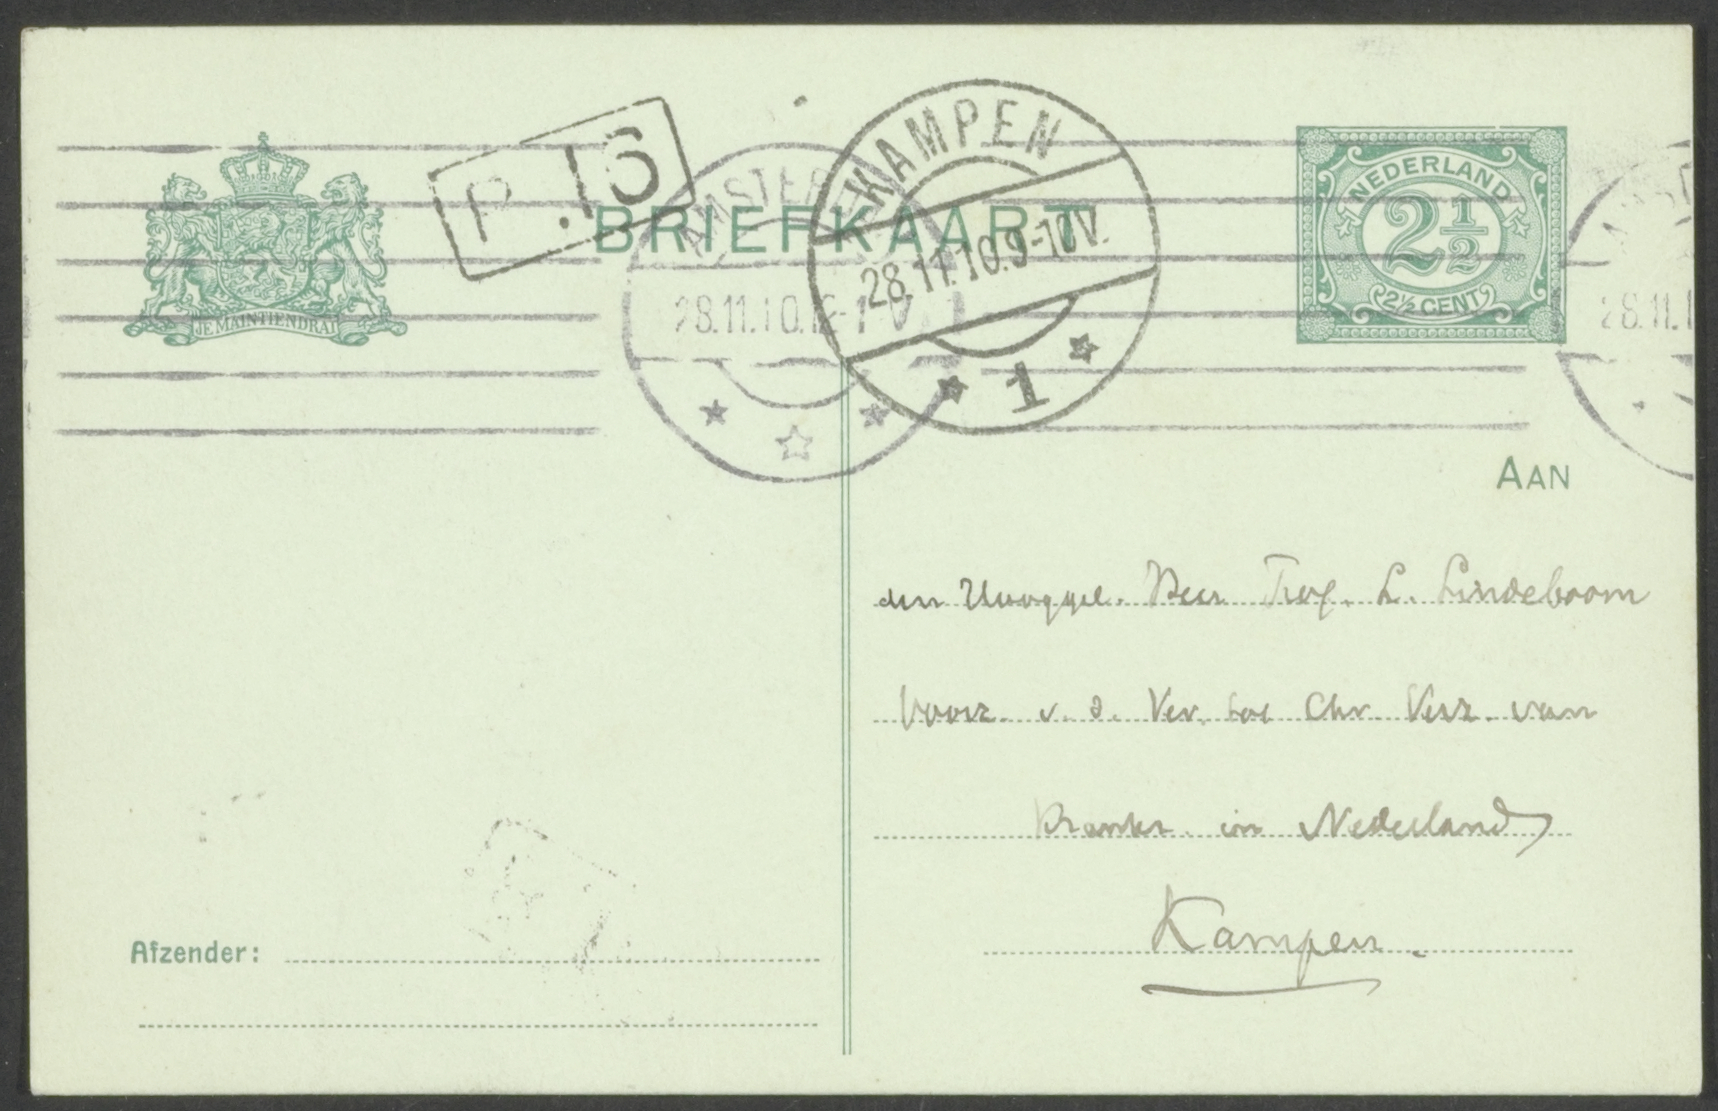 P. 16
AMSTER
KAMPEN
NEDERLAND
2 1/2
BRIEFKAART
28.11.10.9-10V.
28.11.10.12-1 V
28.11.1
2½ CENT
JE MAINTIENDRAI
1
AAN
den Hooggel. Heer Prof. L. Lindeboom
Voorz. v. d. Ver. tot Chr. Verz. van
Krankz. in Nederland
Kampen.
Afzender: